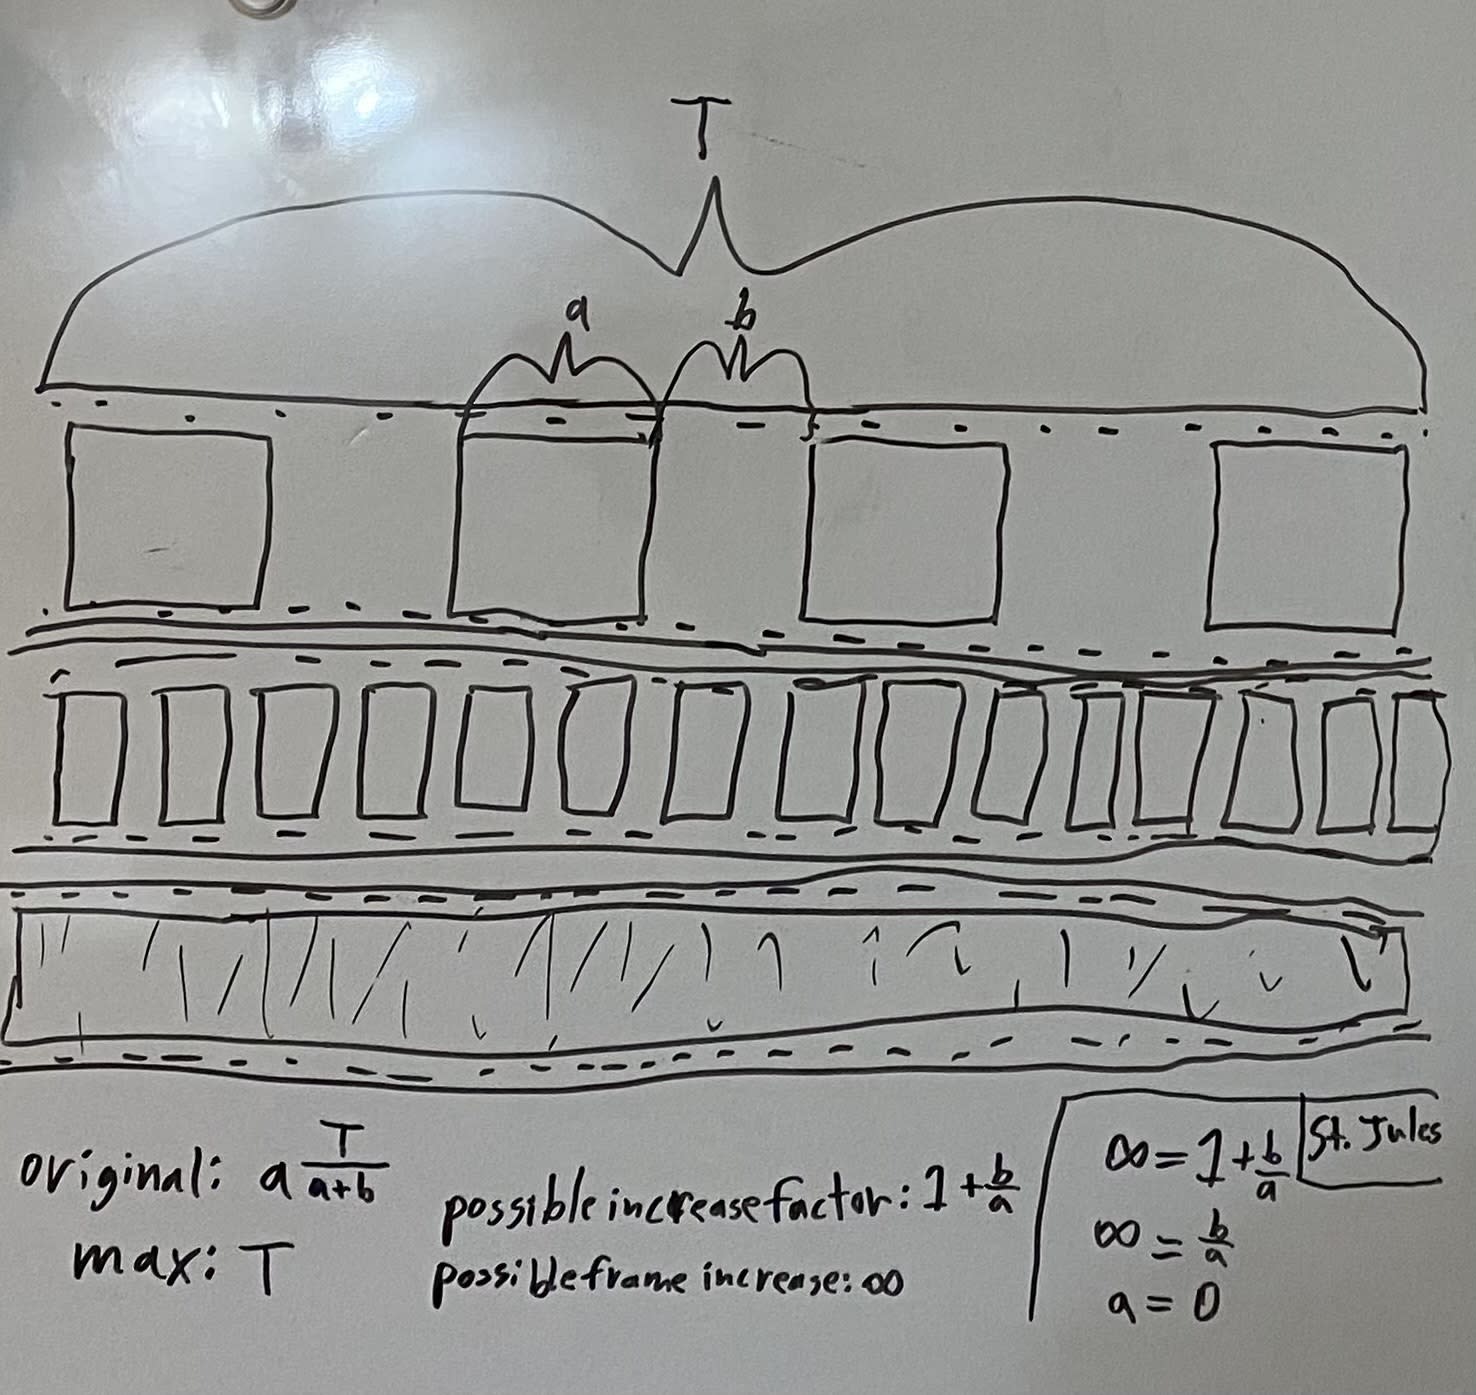 T
a b
original: a T/(a+b)
max: T
possible increase factor: 1 + b/a
possible frame increase: ∞
∞ = 1 + b/a
St. Jules
∞ = b/a
a = 0